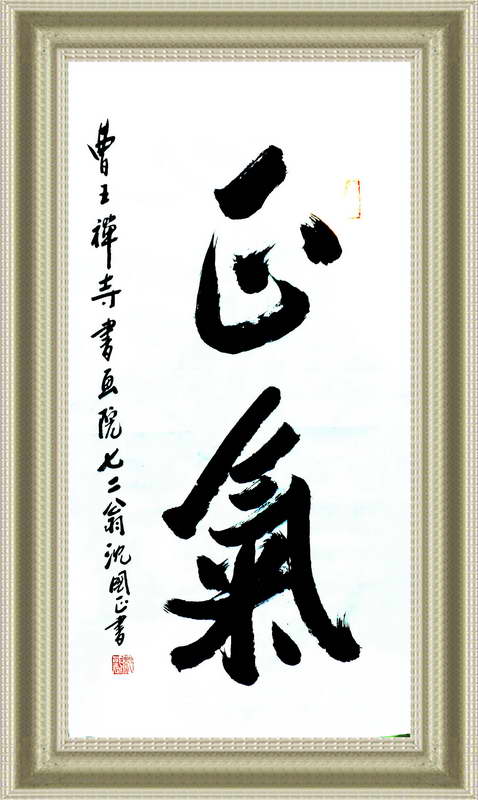 正氣
曹王禪寺書画院七二翁沈國正書